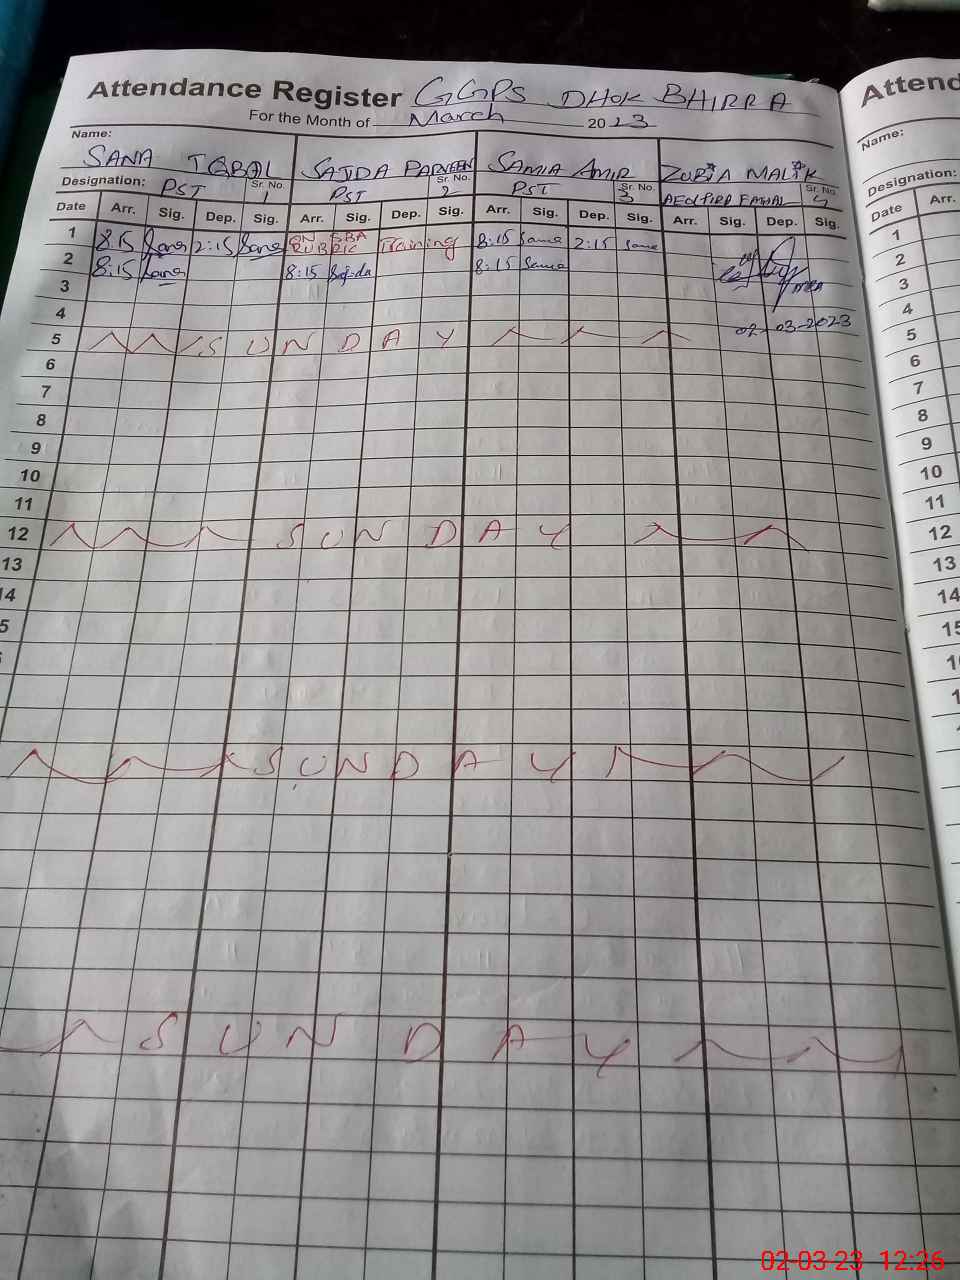 Attendance Register GGPS DHOK BHIRRA
For the Month of March 2023
Name: SANA IQBAL SAJDA PARVEEN SAMIA AMIR ZOBIA MALIK
Designation: PST Sr. No. 1 PST Sr. No. 2 PST Sr. No. 3 Sr. No. 4
Date Arr. Sig. Dep. Sig. Arr. Sig. Dep. Sig. Arr. Sig. Dep. Sig. Arr. Sig. Dep. Sig.
1 8:15 Sana 2:15 Sana ON RUBRIC Training 8:15 2:15
2 8:15 Sana 8:15 Sajda 8:15
3
4 02-03-2023
5 SUNDAY
6
7
8
9
10
11
12 SUNDAY
13
14
5
SUNDAY
SUNDAY
Attend
Name:
Designation:
Date Arr.
1
2
3
4
5
6
7
8
9
10
11
12
13
14
15
02-03-23 12:26